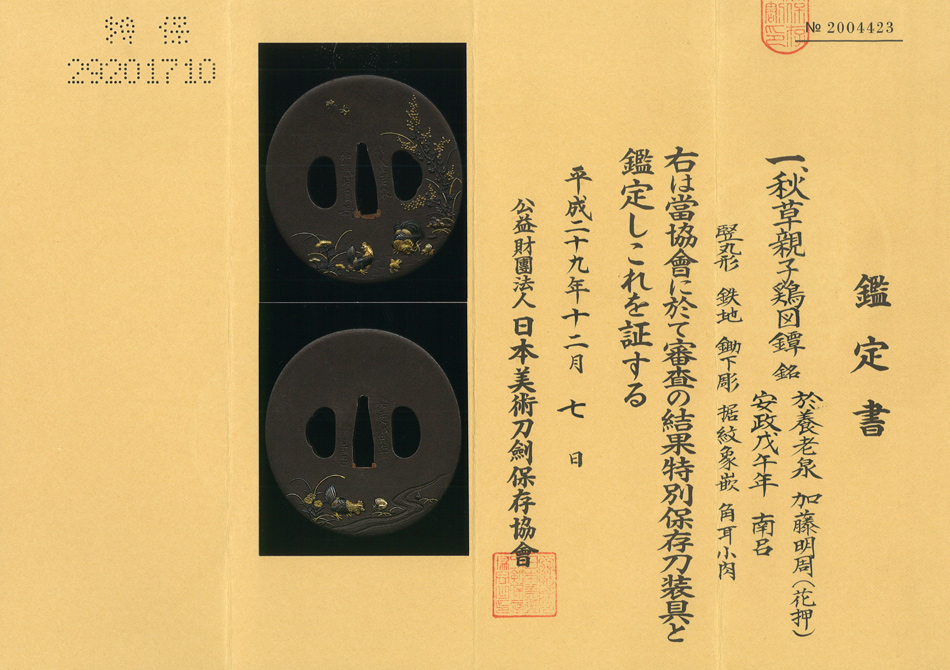 № 2004423
鑑定書
一、秋草親子鶏図鐔 銘
於養老泉 加藤明周(花押)
安政戊午年 南呂
竪丸形 鉄地 鋤下彫 据紋象嵌 角耳小肉
右は當協會に於て審査の結果特別保存刀装具と
鑑定しこれを証する
平成二十九年十二月 七 日
公益財團法人 日本美術刀劍保存協會
特 保
29201710